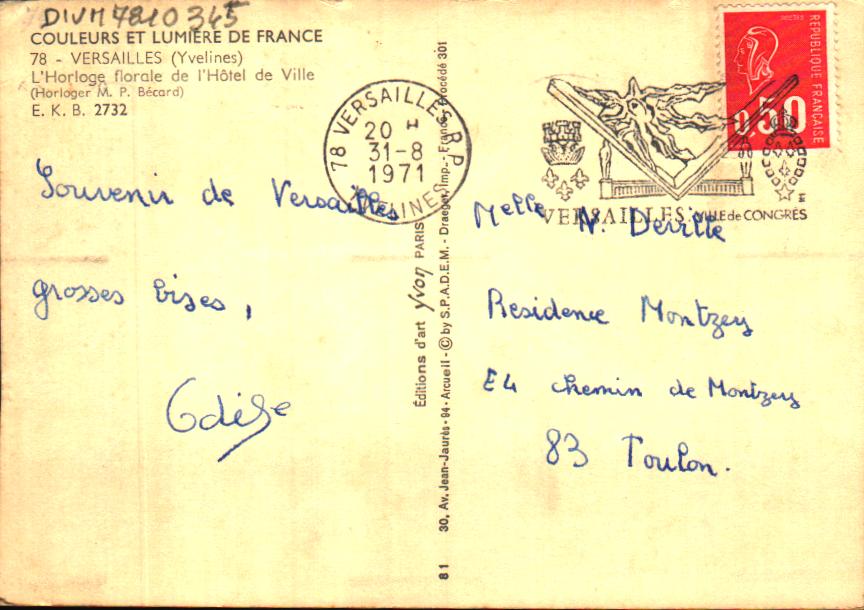 DIVM7810345
COULEURS ET LUMIÈRE DE FRANCE
78 - VERSAILLES (Yvelines)
L'Horloge florale de l'Hôtel de Ville
(Horloger M. P. Bécard)
E. K. B. 2732
78 VERSAILLES R.P.
20 H
31-8
1971
YVELINES
VERSAILLES VILLE de CONGRÈS
REPUBLIQUE FRANÇAISE
0,50
Souvenir de Versailles
grosses bises,
Odile
Éditions d'art yvon PARIS
81 30, Av. Jean-Jaurès - 94 - Arcueil - © by S.P.A.D.E.M. - Draeger, Imp. - France, Procédé 301
Melle N. Deville
Residence Montzey
E4 chemin de Montzey
83 Toulon.